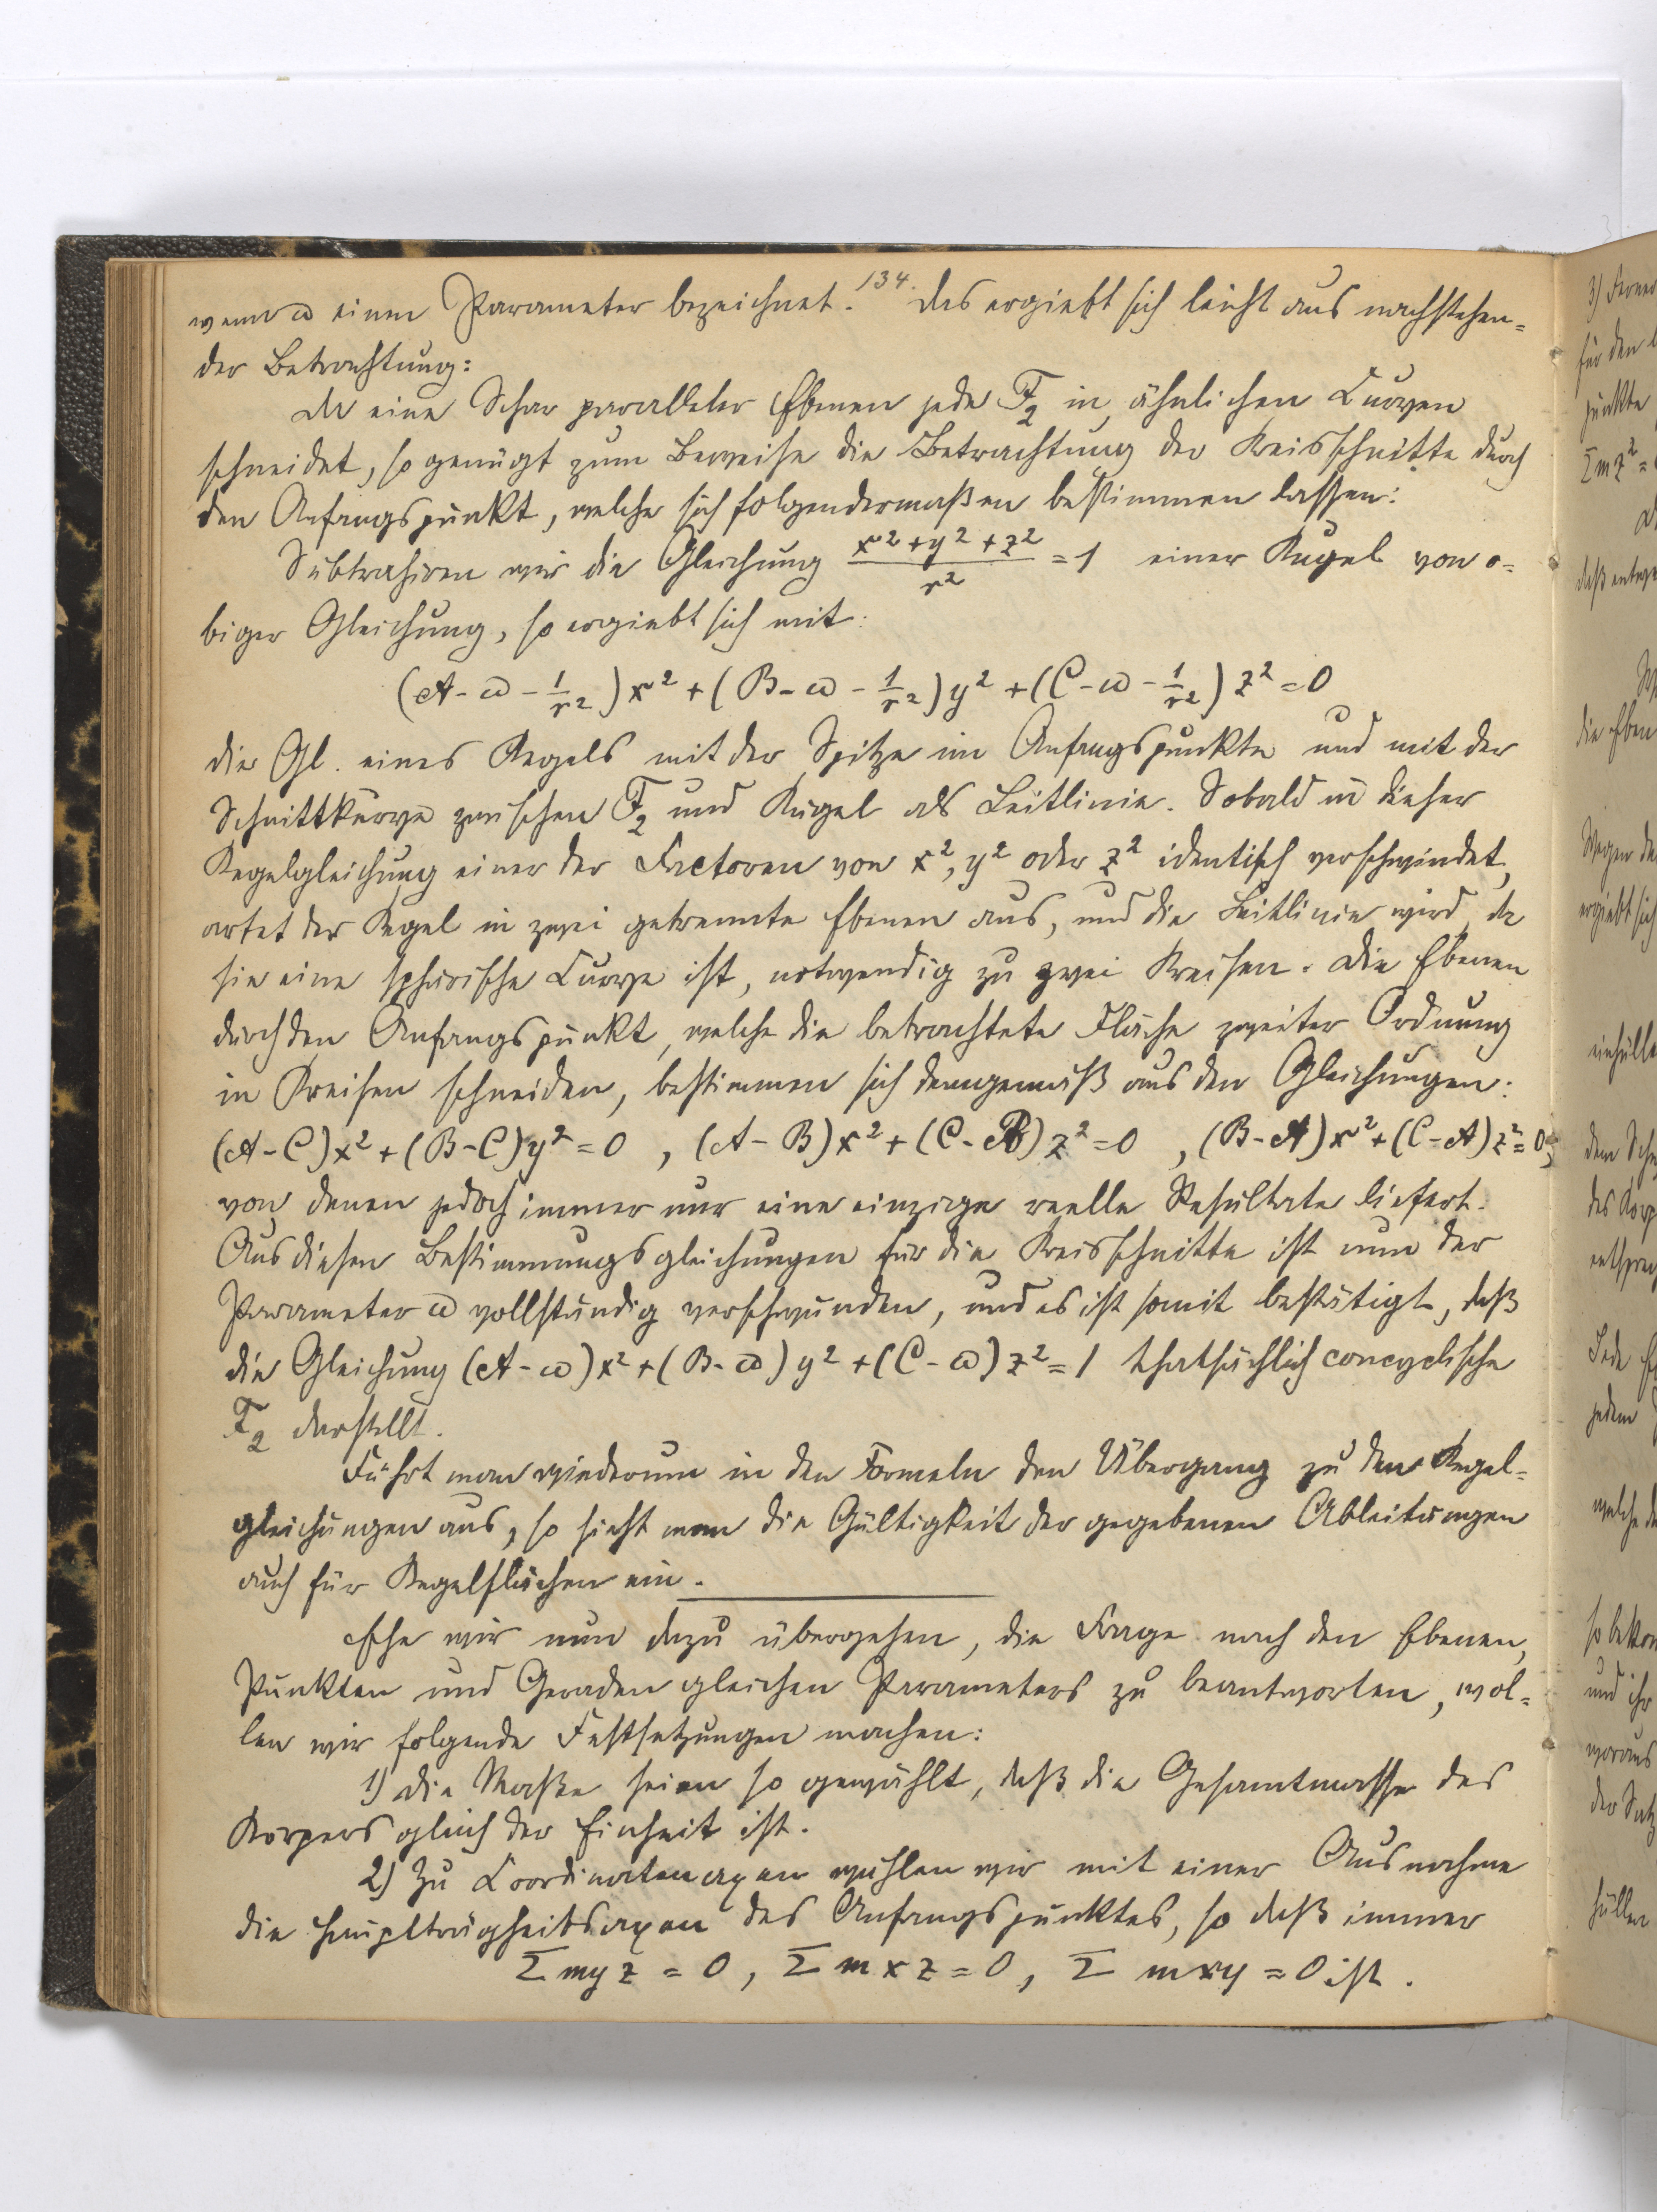 134.
wenn ω einen Parameter bezeichnet. Das ergiebt sich leicht aus nachstehen=
der Betrachtung:
Da eine Schar paralleler Ebenen jede F₂ in ähnlichen Curven
schneidet, so genügt zum Beweise die Betrachtung der Kreisschnitte durch
den Anfangspunkt, welche sich folgendermaßen bestimmen lassen:
Subtrahiren wir die Gleichung (x²+y²+z²)/r² = 1 einer Kugel von o=
biger Gleichung, so ergiebt sich mit:
(A-ω-1/r²)x² + (B-ω-1/r²)y² + (C-ω-1/r²)z² = 0
die Gl. eines Kegels mit der Spitze im Anfangspunkte und mit der
Schnittkurve zwischen F₂ und Kugel als Leitlinie. Sobald in dieser
Kegelgleichung einer der Factoren von x², y² oder z² identisch verschwindet,
artet der Kegel in zwei getrennte Ebenen aus, und die Leitlinie wird, da
sie eine sphärische Curve ist, notwendig zu zwei Kreisen. Die Ebenen
durch den Anfangspunkt, welche die betrachtete Fläche zweiter Ordnung
in Kreisen schneiden, bestimmen sich demgemäß aus den Gleichungen:
(A-C)x² + (B-C)y² = 0 , (A-B)x² + (C-B)z² = 0 , (B-A)x² + (C-A)z² = 0,
von denen jedoch immer nur eine einzige reelle Resultate liefert.
Aus diesen Bestimmungsgleichungen für die Kreisschnitte ist nun der
Parameter ω vollständig verschwunden, und es ist somit bestätigt, daß
die Gleichung (A-ω)x² + (B-ω)y² + (C-ω)z² = 1 thatsächlich concyclische
F₂ darstellt.
Führt man wiederum in den Formeln den Übergang zu den Kegel=
gleichungen aus, so sieht man die Gültigkeit der gegebenen Ableitungen
auch für Kegelflächen ein.
Ehe wir nun dazu übergehen, die Frage nach den Ebenen,
Punkten und Geraden gleichen Parameters zu beantworten, wol=
len wir folgende Festsetzungen machen:
1) Die Maße seien so gewählt, daß die Gesamtmasse des
Körpers gleich der Einheit ist.
2) Zu Coordinatenaxen wählen wir mit einer Ausnahme
die Hauptträgheitsaxen des Anfangspunktes, so daß immer
Σ myz = 0, Σ mxz = 0, Σ mxy = 0 ist.